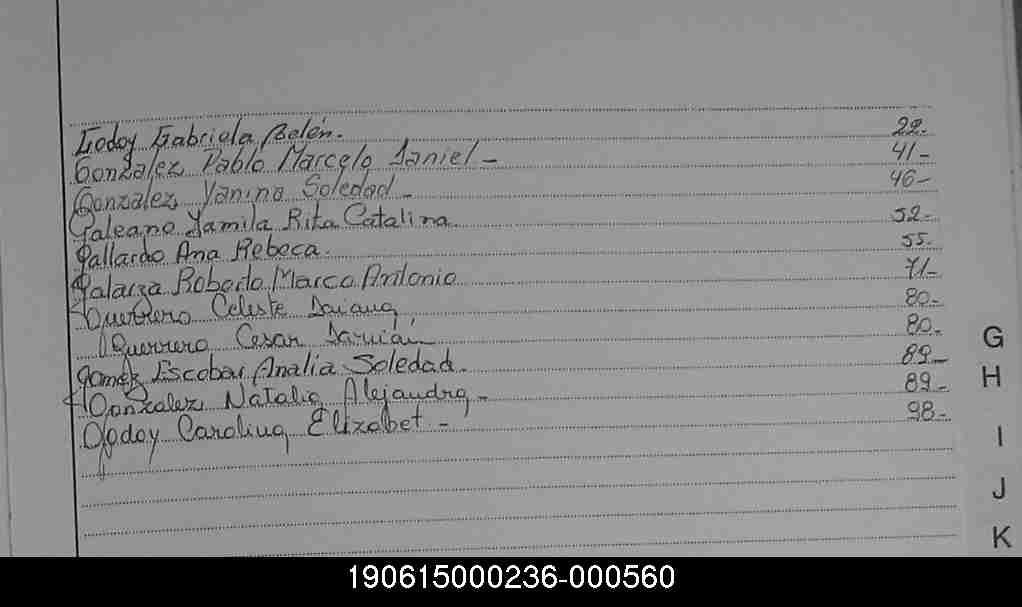 Godoy Gabriela Belén. 22-
Gonzalez Pablo Marcelo Daniel - 41-
Gonzalez, Yanina Soledad - 46-
Galeano Yamila Rita Catalina 52-
Gallardo Ana Rebeca. 55-
Galarza Roberto Marco Antonio 71-
Guerrero Celeste Daiana, 80-
Guerrero Cesar Damián 80.
G
Gomez Escobar Analia Soledad. 89-
H
Gonzalez, Natalia Alejandra - 89-
Godoy Carolina Elizabet - 98-
I
J
K
190615000236-000560